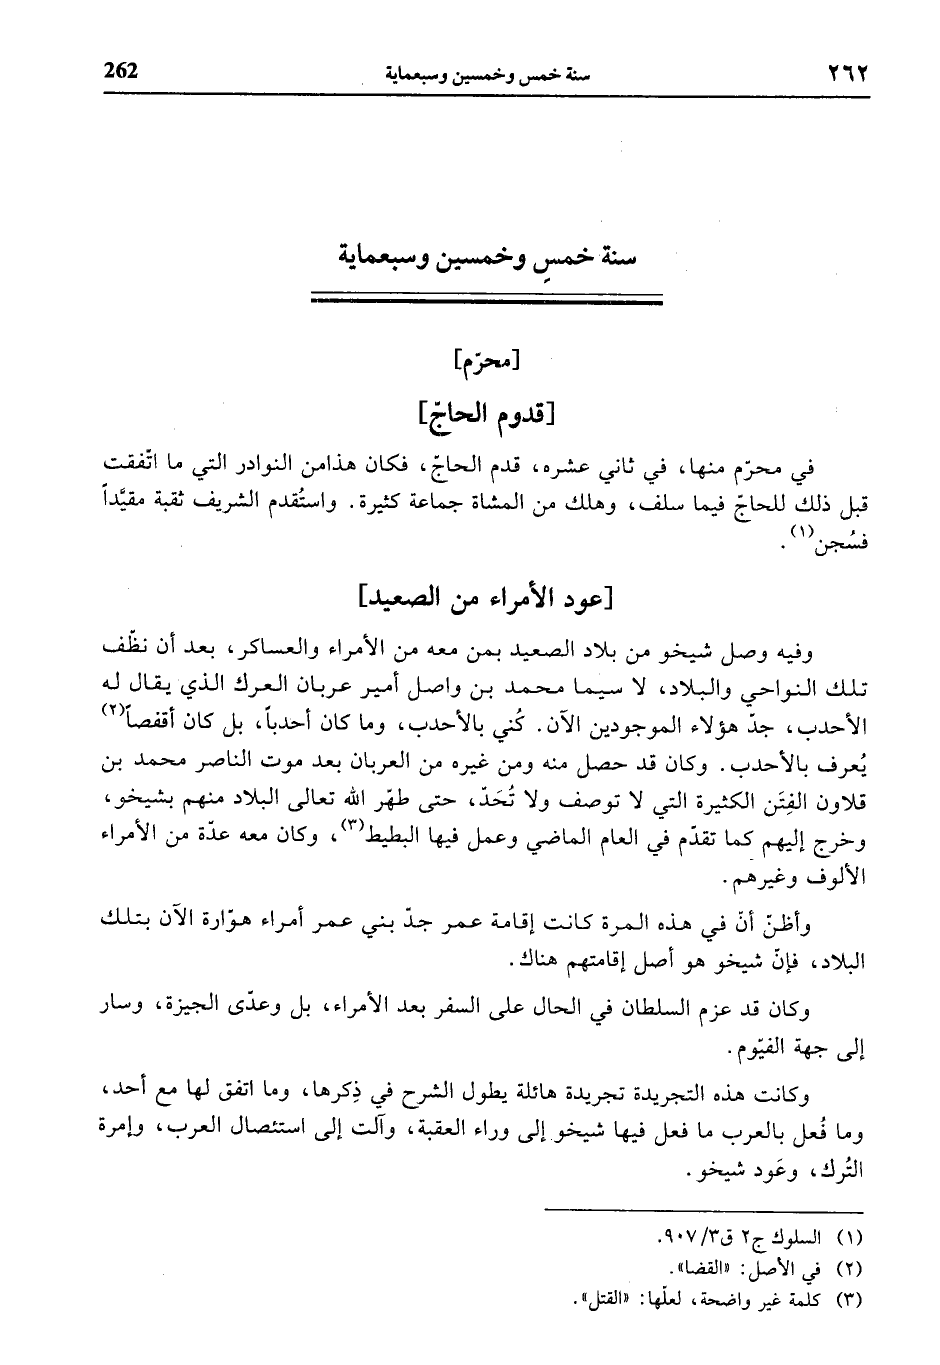 ٢٦٢ سنة خمس وخمسين وسبعماية 262
سنة خمسٍ وخمسين وسبعماية
[محرّم]
[قدوم الحاجّ]
في محرّم منها، في ثاني عشره، قدم الحاجّ، فكان هذامن النوادر التي ما اتّفقت
قبل ذلك للحاجّ فيما سلف، وهلك من المشاة جماعة كثيرة. واستُقدم الشريف ثقبة مقيَّداً
فسُجن(١).
[عود الأمراء من الصعيد]
وفيه وصل شيخو من بلاد الصعيد بمن معه من الأمراء والعساكر، بعد أن نظّف
تلك النواحي والبلاد، لا سيما محمد بن واصل أمير عربان العرك الذي يقال له
الأحدب، جدّ هؤلاء الموجودين الآن. كُني بالأحدب، وما كان أحدباً، بل كان أقفصاً(٢)
يُعرف بالأحدب. وكان قد حصل منه ومن غيره من العربان بعد موت الناصر محمد بن
قلاون الفِتَن الكثيرة التي لا توصف ولا تُحَدّ، حتى طهّر الله تعالى البلاد منهم بشيخو،
وخرج إليهم كما تقدّم في العام الماضي وعمل فيها البطيط(٣)، وكان معه عدّة من الأمراء
الألوف وغيرهم.
وأظنّ أنّ في هذه المرة كانت إقامة عمر جدّ بني عمر أمراء هوّارة الآن بتلك
البلاد، فإنّ شيخو هو أصل إقامتهم هناك.
وكان قد عزم السلطان في الحال على السفر بعد الأمراء، بل وعدّى الجيزة، وسار
إلى جهة الفيّوم.
وكانت هذه التجريدة تجريدة هائلة يطول الشرح في ذِكرها، وما اتفق لها مع أحد،
وما فُعل بالعرب ما فعل فيها شيخو إلى وراء العقبة، وآلت إلى استئصال العرب، وإمرة
التُرك، وعَود شيخو.
(١) السلوك ج٢ ق٣/ ٩٠٧.
(٢) في الأصل: «القضا».
(٣) كلمة غير واضحة، لعلّها: «القتل».